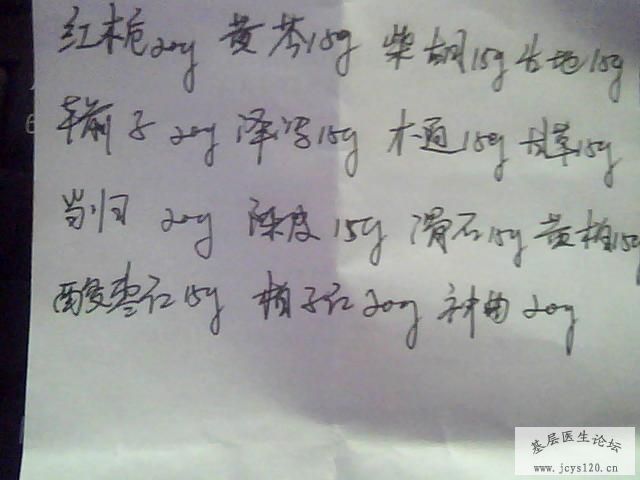 红栀20g 黄芩15g 柴胡15g 生地15g
车前子20g 泽泻15g 木通15g 甘草15g
当归20g 陈皮15g 滑石15g 黄柏15g
酸枣仁15g 柏子仁20g 神曲20g
基层医生论坛
www.jcys120.cn